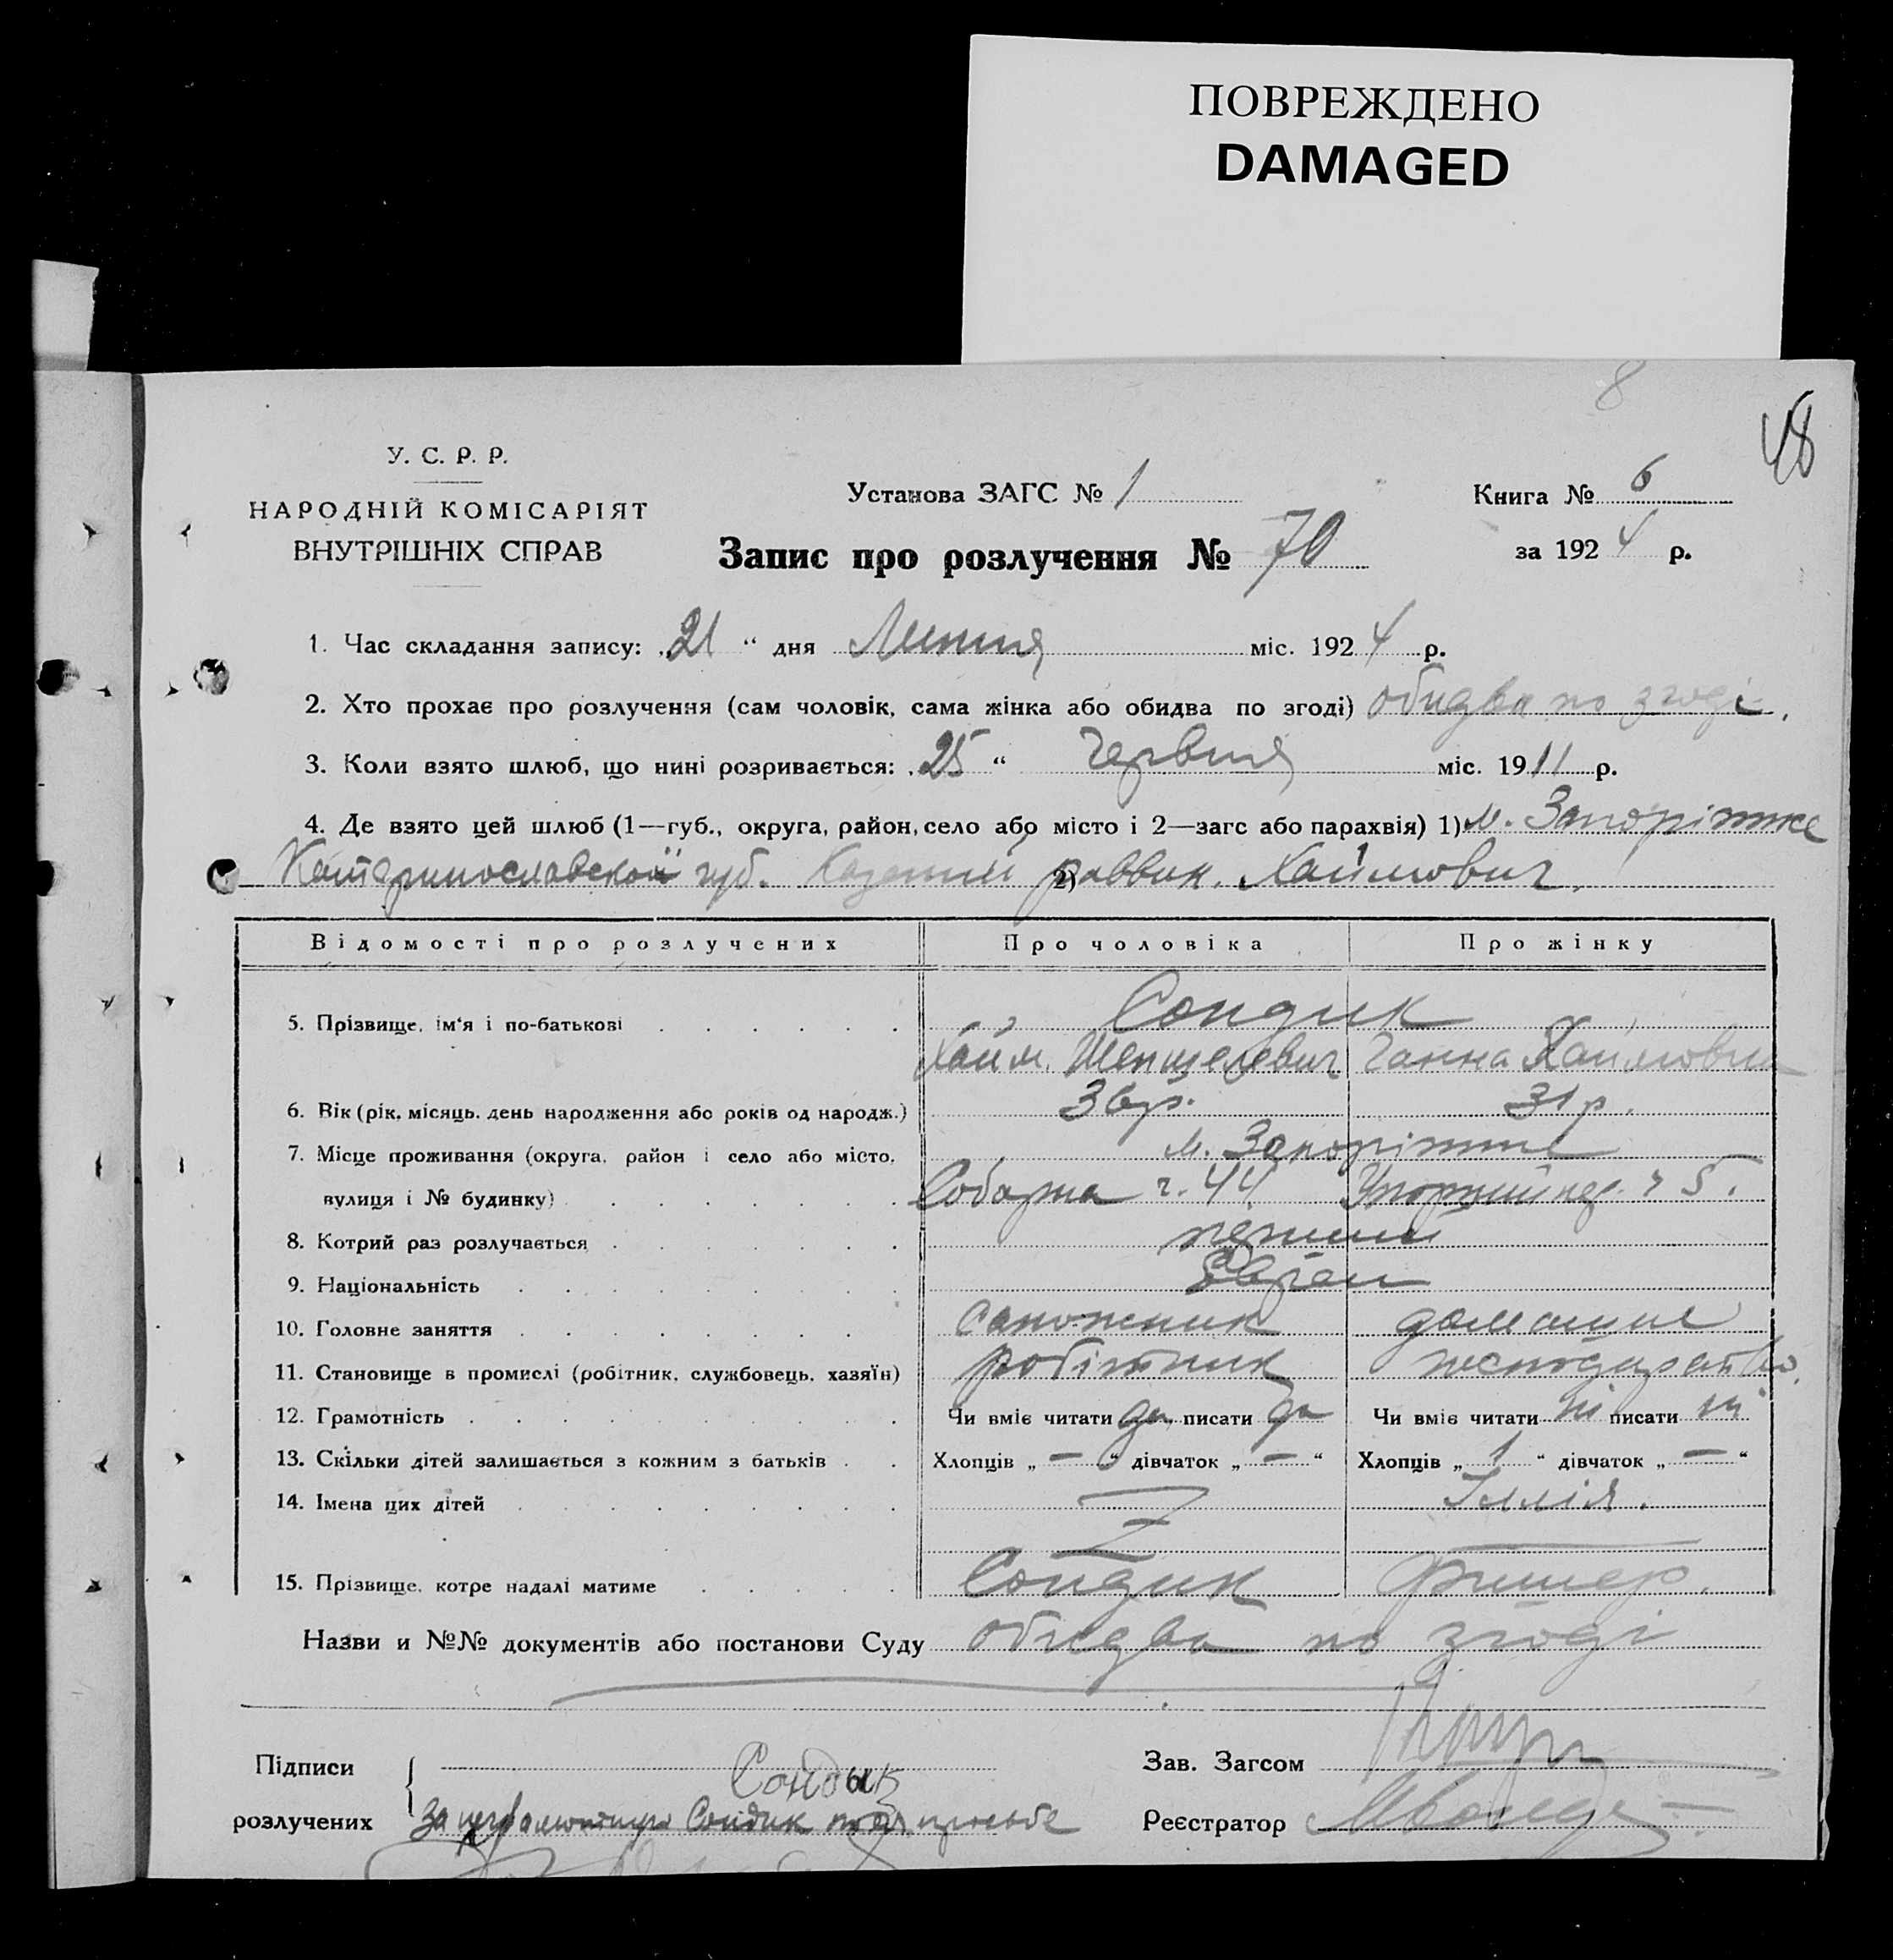 ПОВРЕЖДЕНО
DAMAGED
8
48
У. С. Р. Р.
НАРОДНІЙ КОМІСАРІЯТ
ВНУТРІШНІХ СПРАВ
Установа ЗАГС № 1
Книга № 6
Запис про розлучення № 70
за 1924 р.
1. Час складання запису: „21 “ дня Липня міс. 1924 р.
2. Хто прохає про розлучення (сам чоловік, сама жінка або обидва по згоді) обидва по згоді.
3. Коли взято шлюб, що нині розривається: „25 “ Червня міс. 1911 р.
4. Де взято цей шлюб (1—губ., округа, район, село або місто і 2—загс або парахвія) 1) м. Запоріжже
Катеринославской губ. Казенний 2) раввин. Хаймович.
Відомості про розлучених Про чоловіка Про жінку
5. Прізвище, ім'я і по-батькові Сондик
Хайм. Шепшелевич Ганна Хаймовна
6. Вік (рік, місяць, день народження або років од народж.) 36 р. 31 р.
7. Місце проживання (округа, район і село або місто, м. Запоріжже
вулиця і № будинку) Соборна ч. 44 ч 5.
8. Котрий раз розлучається перший
9. Національність Євреи
10. Головне заняття сапожник домашне
11. Становище в промислі (робітник, службовець, хазяїн) робітник господарство.
12. Грамотність Чи вміє читати да писати да Чи вміє читати ні писати ні
13. Скільки дітей залишається з кожним з батьків Хлопців „ — “ дівчаток „ — “ Хлопців „ 1 “ дівчаток „ — “
14. Імена цих дітей — Іллія.
15. Прізвище, котре надалі матиме Сондик Фишер.
Назви и №№ документів або постанови Суду обидва по згоді
Підписи Сондык
Зав. Загсом
розлучених За неграмотную Сондик по ея прозьбе
Реєстратор